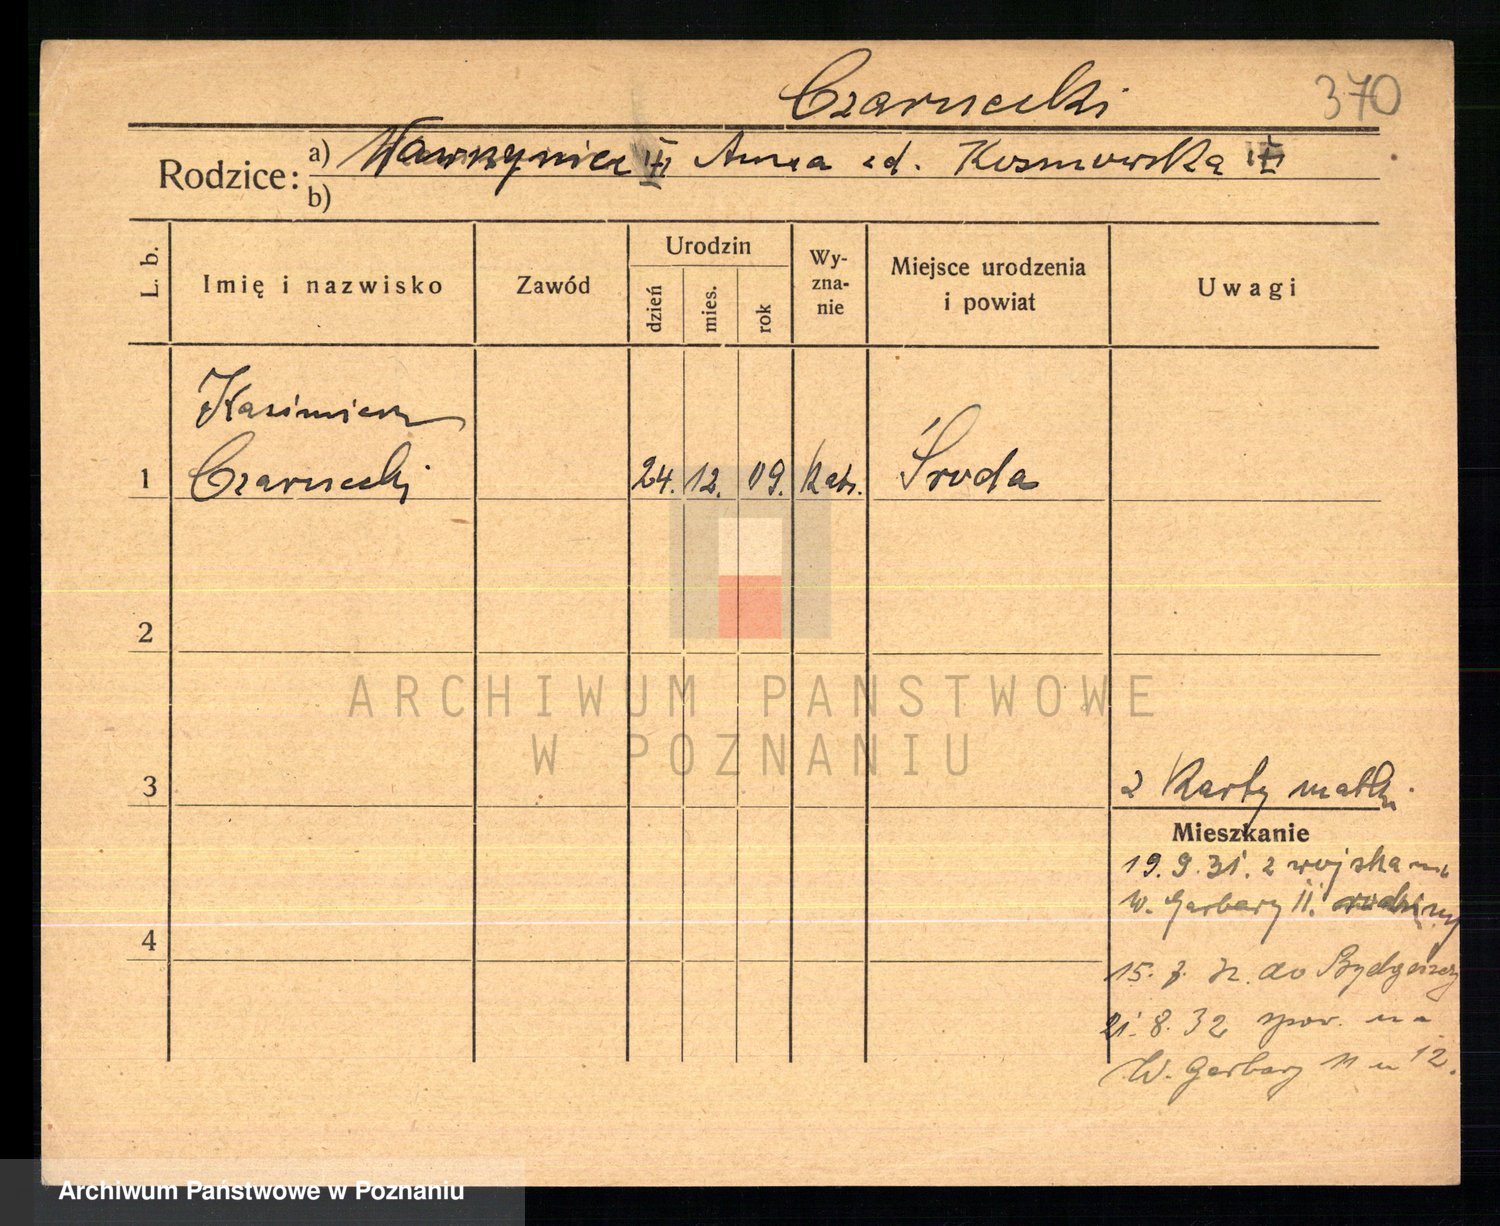 Czarnecki 370
Rodzice: a) Wawrzyniec Anna zd. Kosmowska
b)
L. b. Imię i nazwisko Zawód Urodzin dzień mies. rok Wy-zna-nie Miejsce urodzenia i powiat Uwagi
Kazimierz
1 Czarnecki 24. 12. 09. kat. Środa
2
ARCHIWUM PAŃSTWOWE
W POZNANIU
3 2 Karty matki
Mieszkanie
19.9.31. z wojska na
W. Garbary 11.
4
15. 7. 32. do Bydgoszczy
21. 8. 32 spow. na
W. Garbary 11 m 12.
Archiwum Państwowe w Poznaniu